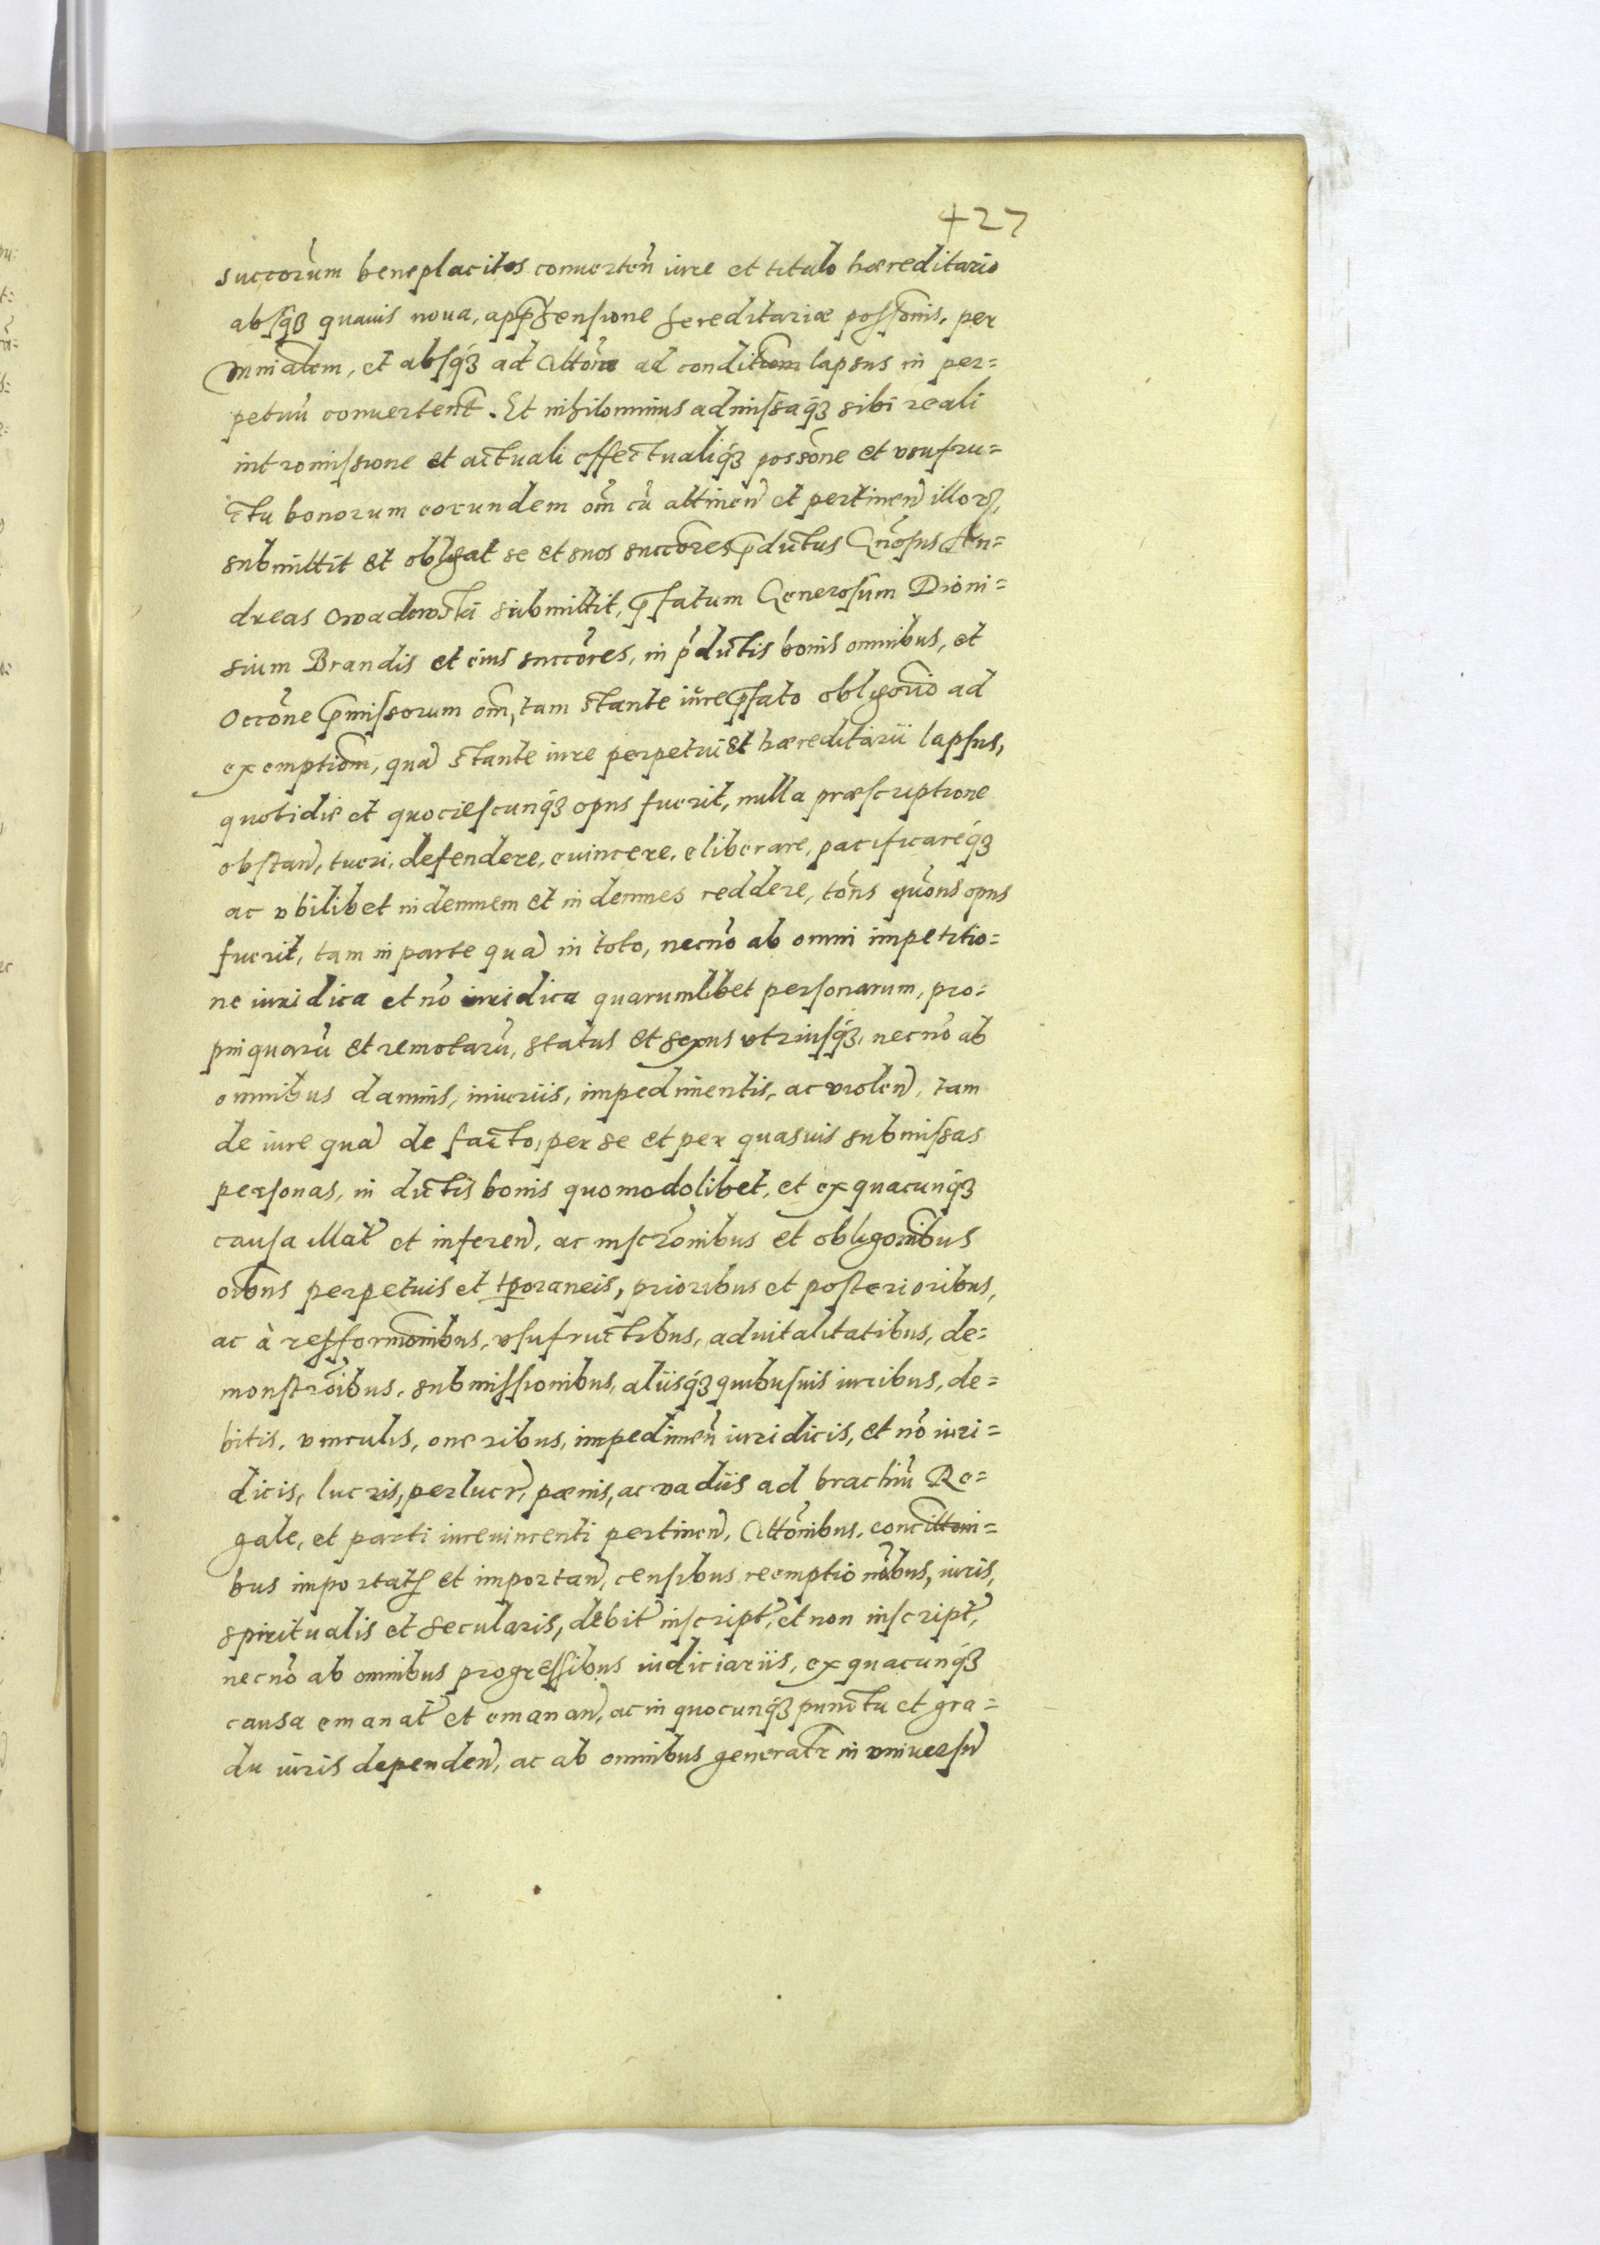 427
succorum beneplacitos converten̄ iure et titulo hæreditario
absq̧ quavis nova, app̄hensione hereditariæ possonis, per
minialem, et absq̧ ad Attone ad conditiem lapsus in per=
petuū convertent. Et nihilominus admissaq̧ sibi reali
intromissione et actuali effectualiq̧ possone et usufru=
ctu bonorum eorundem om̄ cū attinen̄ et pertinen̄ illor,
submittit et obligat se et suos succores p̄dictus Gn̄osus An=
dreas Owadowski submittit, p̄fatum Generosum Dioni=
sium Brandis et eius succores, in p̄dictis bonis omnibus, et
occone p̄missorum om̄, tam stante iure p̄fato obligorio ad
exemptiom, quā stante iure perpetui et hæreditarii lapsus,
quotidie et quociescunq̧ opus fuerit, nulla præscriptione
obstan̄, tueri, defendere, evincere, eliberare, pacificareq̧
ac ubilibet indemnem et indemnes reddere, tōns quōns opus
fuerit, tam in parte quā in toto, necnō ab omni impetitio=
ne iuridica et nō iuridica quarumlibet personarum, pro=
pinquarū et remotarū, status et sexus utriusq̧, necnō ab
omnibus damnis, iniuriis, impedimentis, ac violen̄, tam
de iure quā de facto, per se et per quasvis submissas
personas, in dictis bonis quomodolibet, et ex quacunq̧
causa illat̄ et inferen̄, ac inscronibus et obligonibus
oibus perpetuis et tp̄oraneis, prioribus et posterioribus,
ac à resformonibus, usufructibus, advitalitatibus, de=
monstroibus, submissionibus, aliisq̧ quibusvis iuribus, de=
bitis, vinculis, oneribus, impedimen̄ iuridicis, et nō iuri=
dicis, lucris, perlucr̄, pænis, ac vadiis ad brachiū Re=
gale, et parti iurevincenti pertinen̄, Attonibus, concittoni=
bus importat̄ et importan̄, censibus reemptionōbus, iuris,
spiritualis et secularis, debit̄ inscript̄, et non inscript̄,
necnō ab omnibus progressibus iudiciariis, ex quacunq̧
causa emanat̄ et emanan̄, ac in quocunq̧ punctu et gra=
du iuris dependen̄, ac ab omnibus generatr in universū